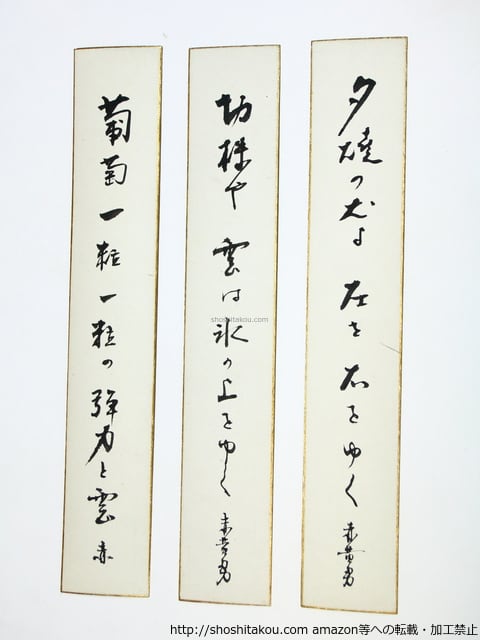 夕燒の犬よ 左を右をゆく 赤黄男
切株や 雲は氷の上をゆく 赤黄男
葡萄一粒一粒の弾力と雲 赤
shoshitakou.com
http://shoshitakou.com amazon等への転載・加工禁止